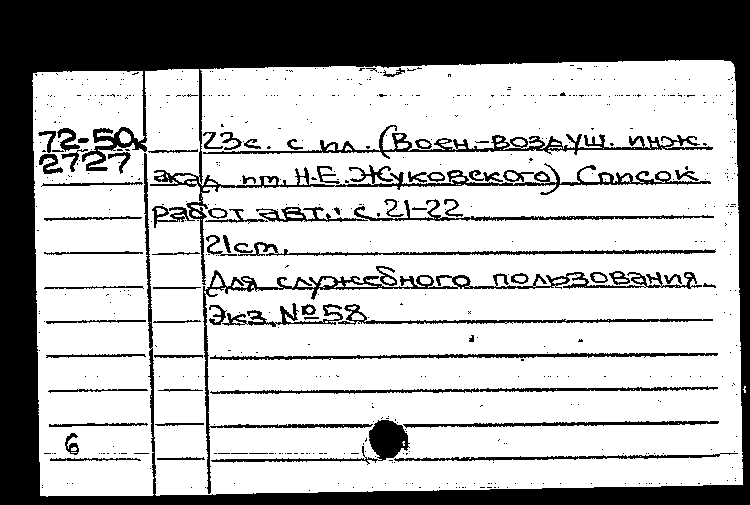 72-50к 23с. с ил. (Воен.-воздуш. инж.
2727
акад. им. Н.Е. Жуковского) Список
работ авт.: с. 21-22
21cm.
Для служебного пользования.
Экз. № 58
6